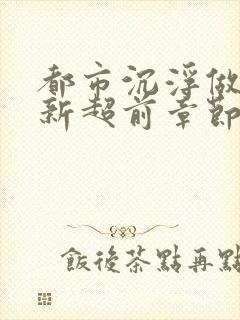 都市沉浮做
新超前章節
飯後茶點再點